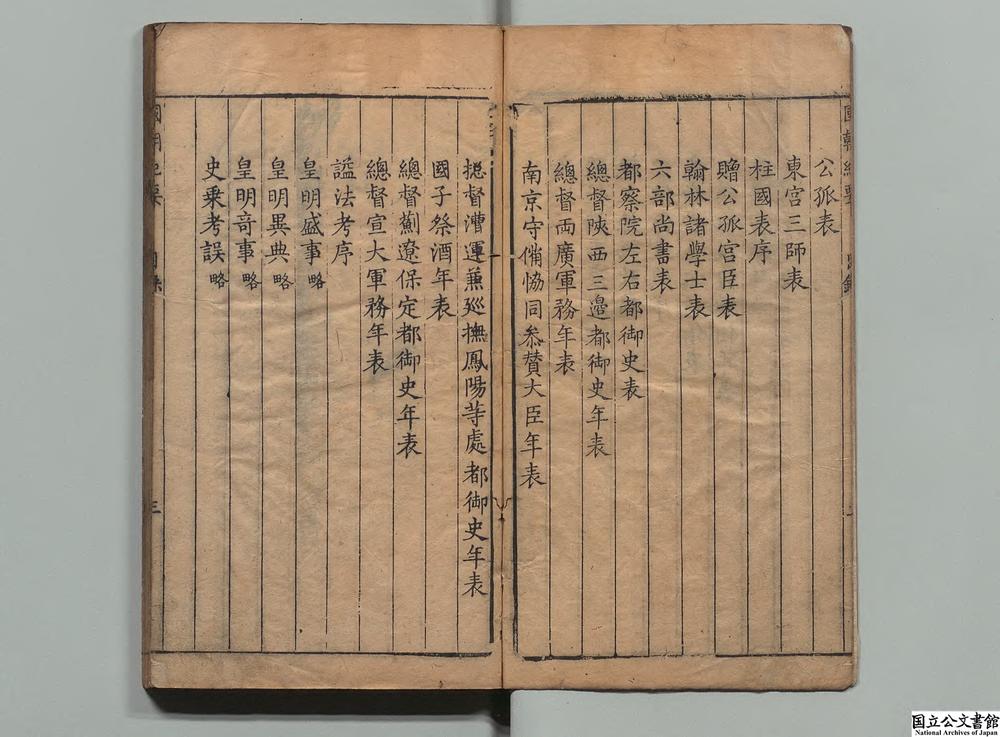 公孤表
東宮三師表
柱國表序
贈公孤宮臣表
翰林諸學士表
六部尚書表
都察院左右都御史表
總督陝西三邊都御史年表
總督兩廣軍務年表
南京守備協同叅賛大臣年表
摠督漕運兼廵撫鳳陽等處都御史年表
國子祭酒年表
總督薊遼保定都御史年表
總督宣大軍務年表
謚法考序
皇明盛事略
皇明異典略
皇明竒事略
史乗考誤略
三
国立公文書館
National Archives of Japan